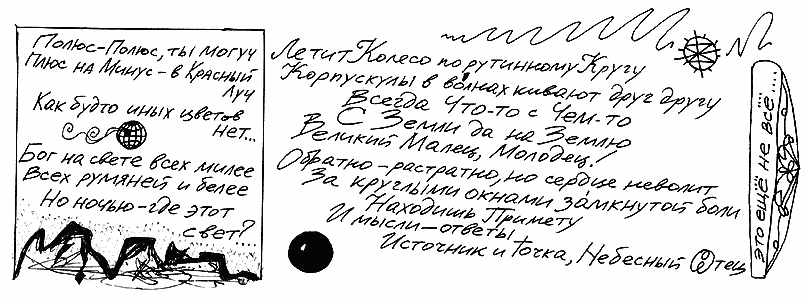 Полюс-Полюс, ты могуч
Плюс на Минус - в Красный
Луч
Как будто иных цветов
нет...
Бог на свете всех милее
Всех румяней и белее
Но ночью - где этот
свет?
Летит Колесо по рутинному Кругу
Корпускулы в волнах кивают друг другу
Всегда Что-то с Чем-то
С Земли да на Землю
Великий Малец, Молодец!
Обратно - растратно, но сердце неволит
За круглыми окнами замкнутой боли
Находишь Примету
И мысли - ответы
Источник и Точка, Небесный Отец
это ещё не все...